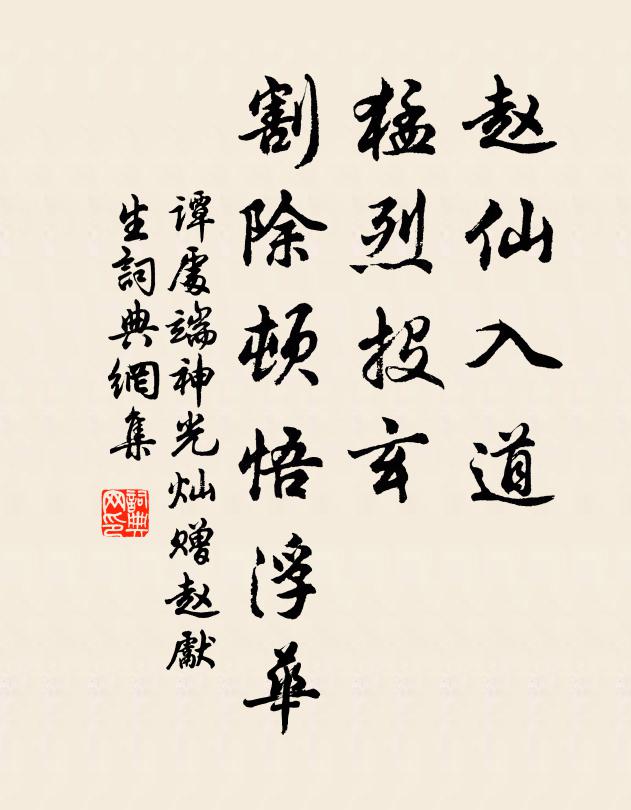 赵仙入道
猛烈投玄
割除顿悟浮華
谭處端神光灿赠赵獻
生詞典網集
詞典網印